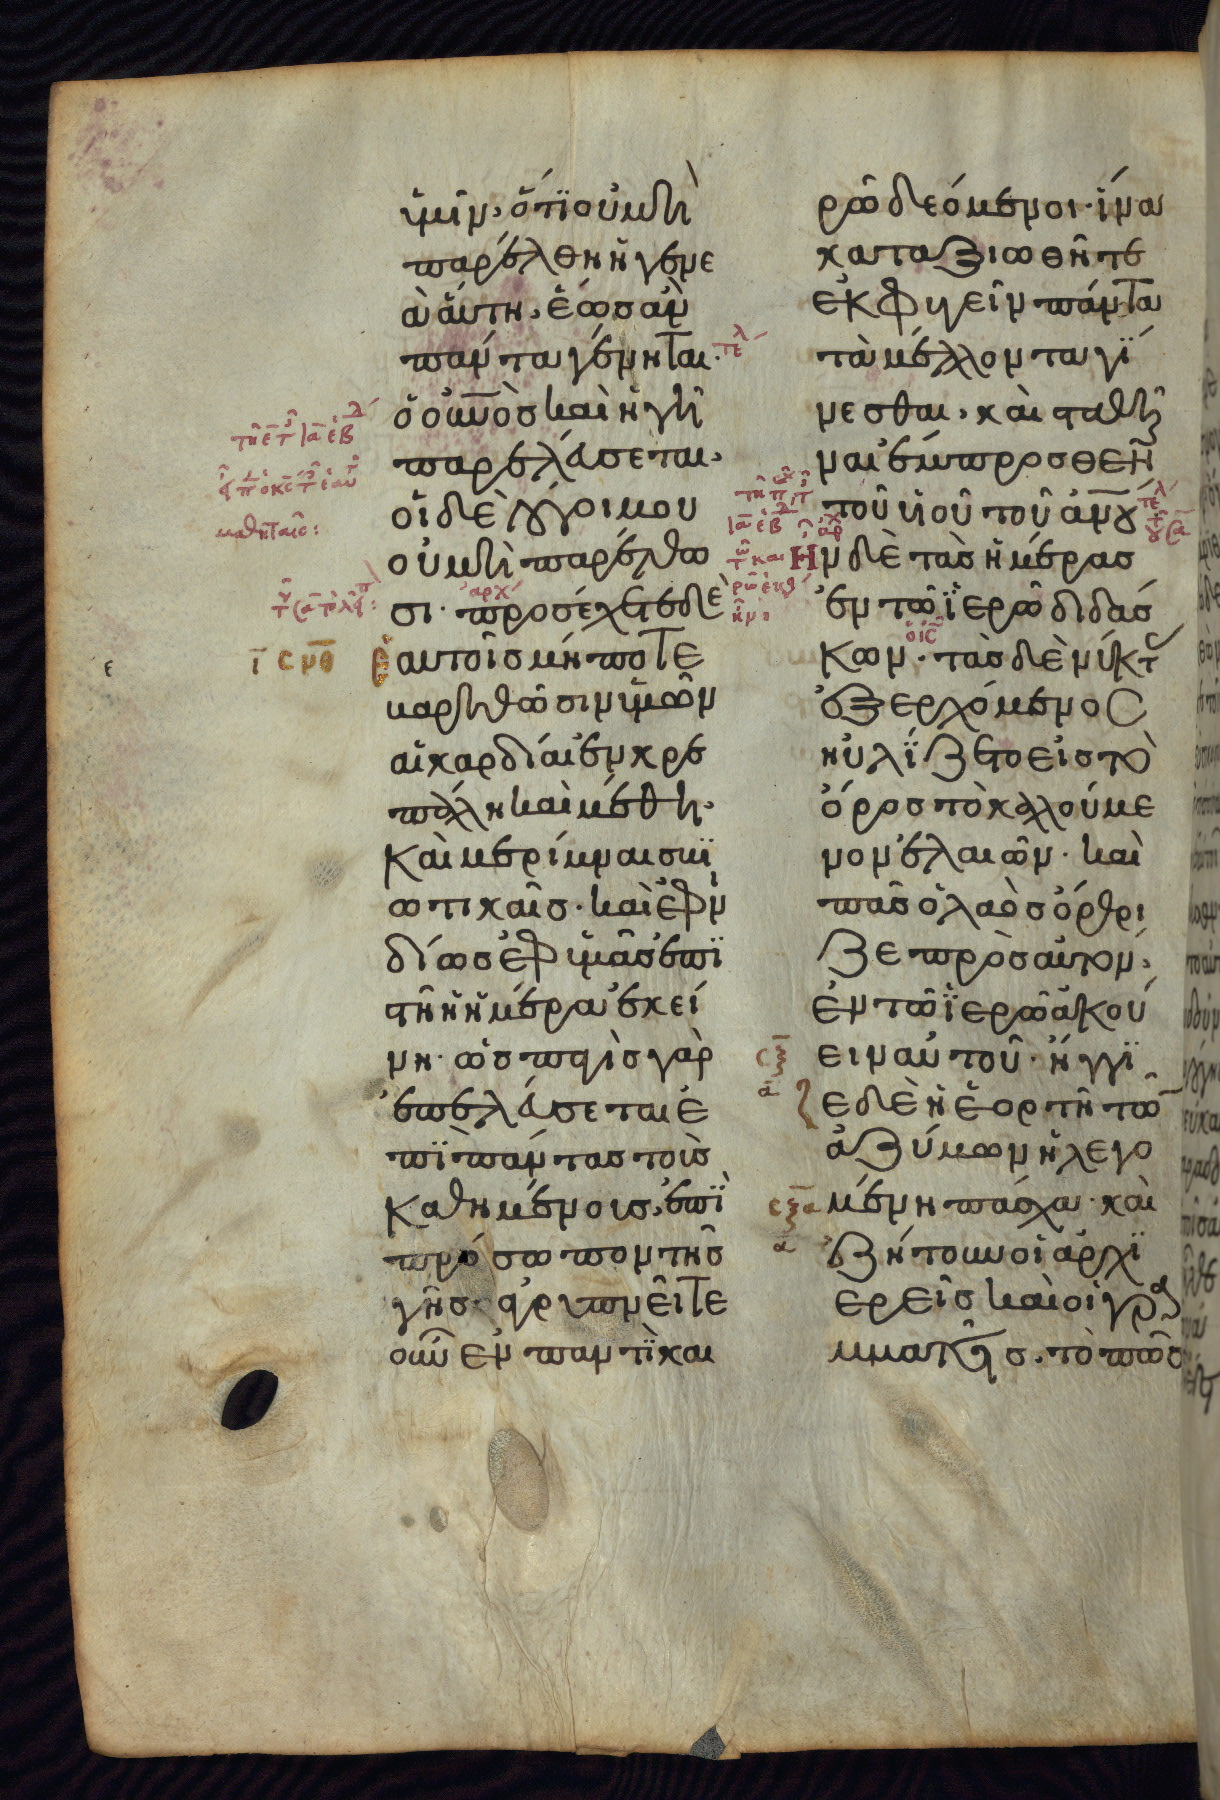 ὑμῖν· ὅτι οὐ μὴ
παρέλθη ἡ γενε
ὰ ἅυτη· ἕως ἀν
πάντα γένηται·
ὁ οὐνὸσ καὶ ἡ γῆ
παρελέυσεται·
ὁι δὲ λόγοι μου
οὐ μὴ παρέλθω
σι· προσέχετε δὲ
ἑαυτοῖσ μήποτε
βαρηθῶσιν ὑμῶν
αἱ καρδίαι ἐν κρε
πάλη καὶ μέθη·
καὶ μερίμναισ βϊ
ωτικαῖσ· καὶ ἐφν
δίωσ ἐφ ὑμᾶσ ἐπϊ
στῆ ἡ ἡμέρα ἐκεί
νη· ὡσ παγὶσ γὰρ
ἐπελέυσεται ἐ
πϊ πάντασ τοὺσ
καθημένουσ· ἐπϊ
πρόσωπον τῆσ
γῆσ· ἀγρυπνεῖτε
οὖν ἐν παντϊ και
ρῶ δεόμενοι· ἵνα
καταξιωθῆτε
ἐκφυγεῖν πάντα
τὰ μέλλοντα γϊ
νεσθαι· καὶ σταθῆ
ναι ἔμπροσθεν
τοῦ υἱοῦ τοῦ ἀνου
Ην δὲ τὰσ ἡμέρασ
ἐν τῶ ϊερῶ διδάσ
κων· τὰσ δὲ νύκτ
ἐξερχόμενος
ηὐλϊζετο εἰσ τὸ
ὄροσ τὸ καλούμε
νον ἐλαιῶν· καὶ
πᾶσ ὁ λαὸσ ὄρθρι
ζε πρὸσ αὐτον·
ἐν τῶ ϊερῶ ἀκού
ειν αὐτοῦ· ἤγγϊ
ζε δὲ ἡ ἑορτὴ τῶ
ἀζύμων ἡ λεγο
μένη πάσχα· καὶ
ἐζήτουν οἱ ἀρχϊ
ερεῖσ καὶ οἱ γρα
μματεῖσ· τὸ πῶσ